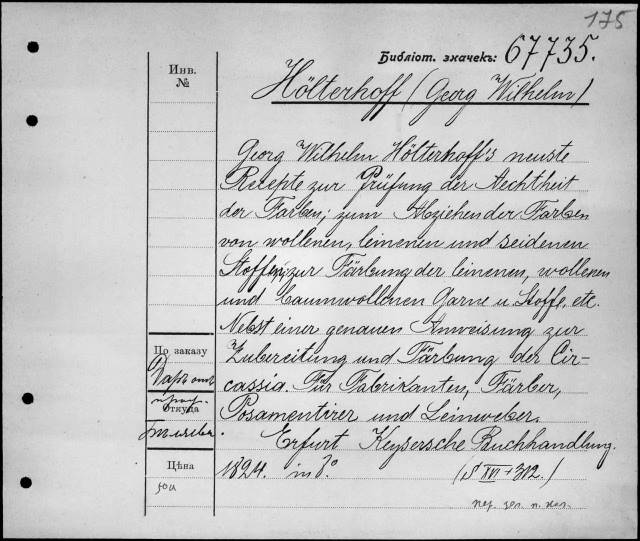 175
Библіот. значекъ: 67735.
Инв.
№
Hölterhoff (Georg Wilhelm)
Georg Wilhelm Hölterhoff's neuste
Recepte zur Prüfung der Aechtheit
der Farben; zum Abziehen der Farben
von wollenen, leinenen und seidenen
Stoffen; zur Färbung der leinenen, wollenen
und baumwollenen Garne u. Stoffe, etc.
Nebst einer genauen Anweisung zur
Zubereitung und Färbung der Cir-
cassia. Für Fabrikanten, Färber,
Posamentirer und Leinweber.
Erfurt Keysersche Buchhandlung.
1824. in 8°. (S XVI + 312.)
По заказу
Откуда
Цѣна